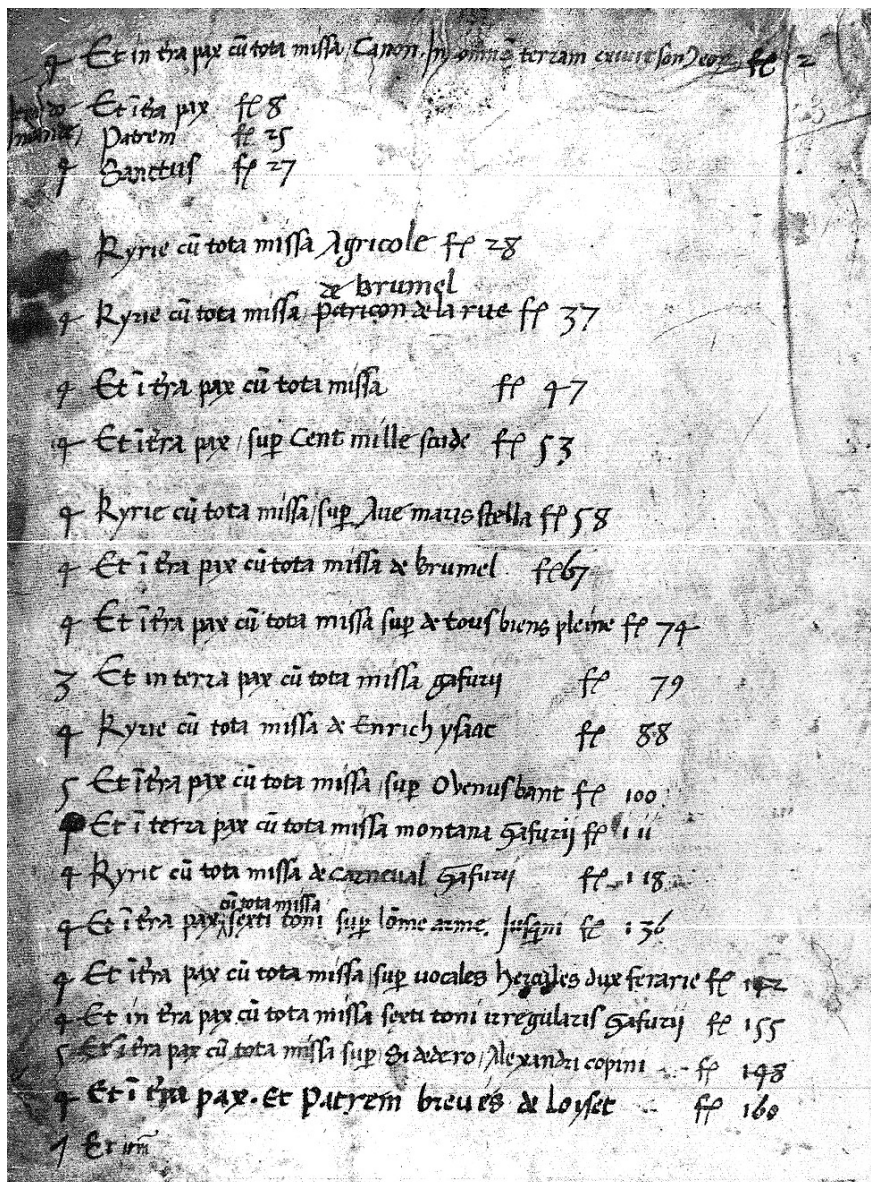 4 Et in t̄ra pax cū tota missa / Canon. In omnē terram exiuit son eor fl 2
Et ī t̄ra pax fl 8
Patrem fl 25
4 Sanctus fl 27
Kyrie cū tota missa Agricole fl 28
de brumel
4 Kyrie cū tota missa / petriçon de la rue fl 37
4 Et ī t̄ra pax cū tota missa fl 47
4 Et ī t̄ra pax / sup̱ Cent mille scude fl 53
4 Kyrie cū tota missa / sup̱ Aue maris stella fl 58
4 Et ī t̄ra pax cū tota missa de brumel fl 67
4 Et ī t̄ra pax cū tota missa sup̱ de tous biens pleine fl 74
3 Et in terra pax cū tota missa gafurij fl 79
4 Kyrie cū tota missa de Enrich ysaac fl 88
5 Et ī t̄ra pax cū tota missa / sup̱ O venus bant fl 100
4 Et ī terra pax cū tota missa montana Gafurij fl 111
4 Kyrie cū tota missa de carneual Gafurij fl 118
cū tota missa
4 Et ī t̄ra pax sexti toni sup̱ lōme arme. Jusqni fl 136
4 Et ī t̄ra pax cū tota missa / sup̱ uocales hercules dux ferarie fl 142
4 Et in t̄ra pax cū tota missa sexti toni irregularis Gafurij fl 155
5 Et ī t̄ra pax cū tota missa sup̱ Si dedero / Alexandri copini fl 148
4 Et ī t̄ra pax. Et Patrem breues de loyset fl 160
Et